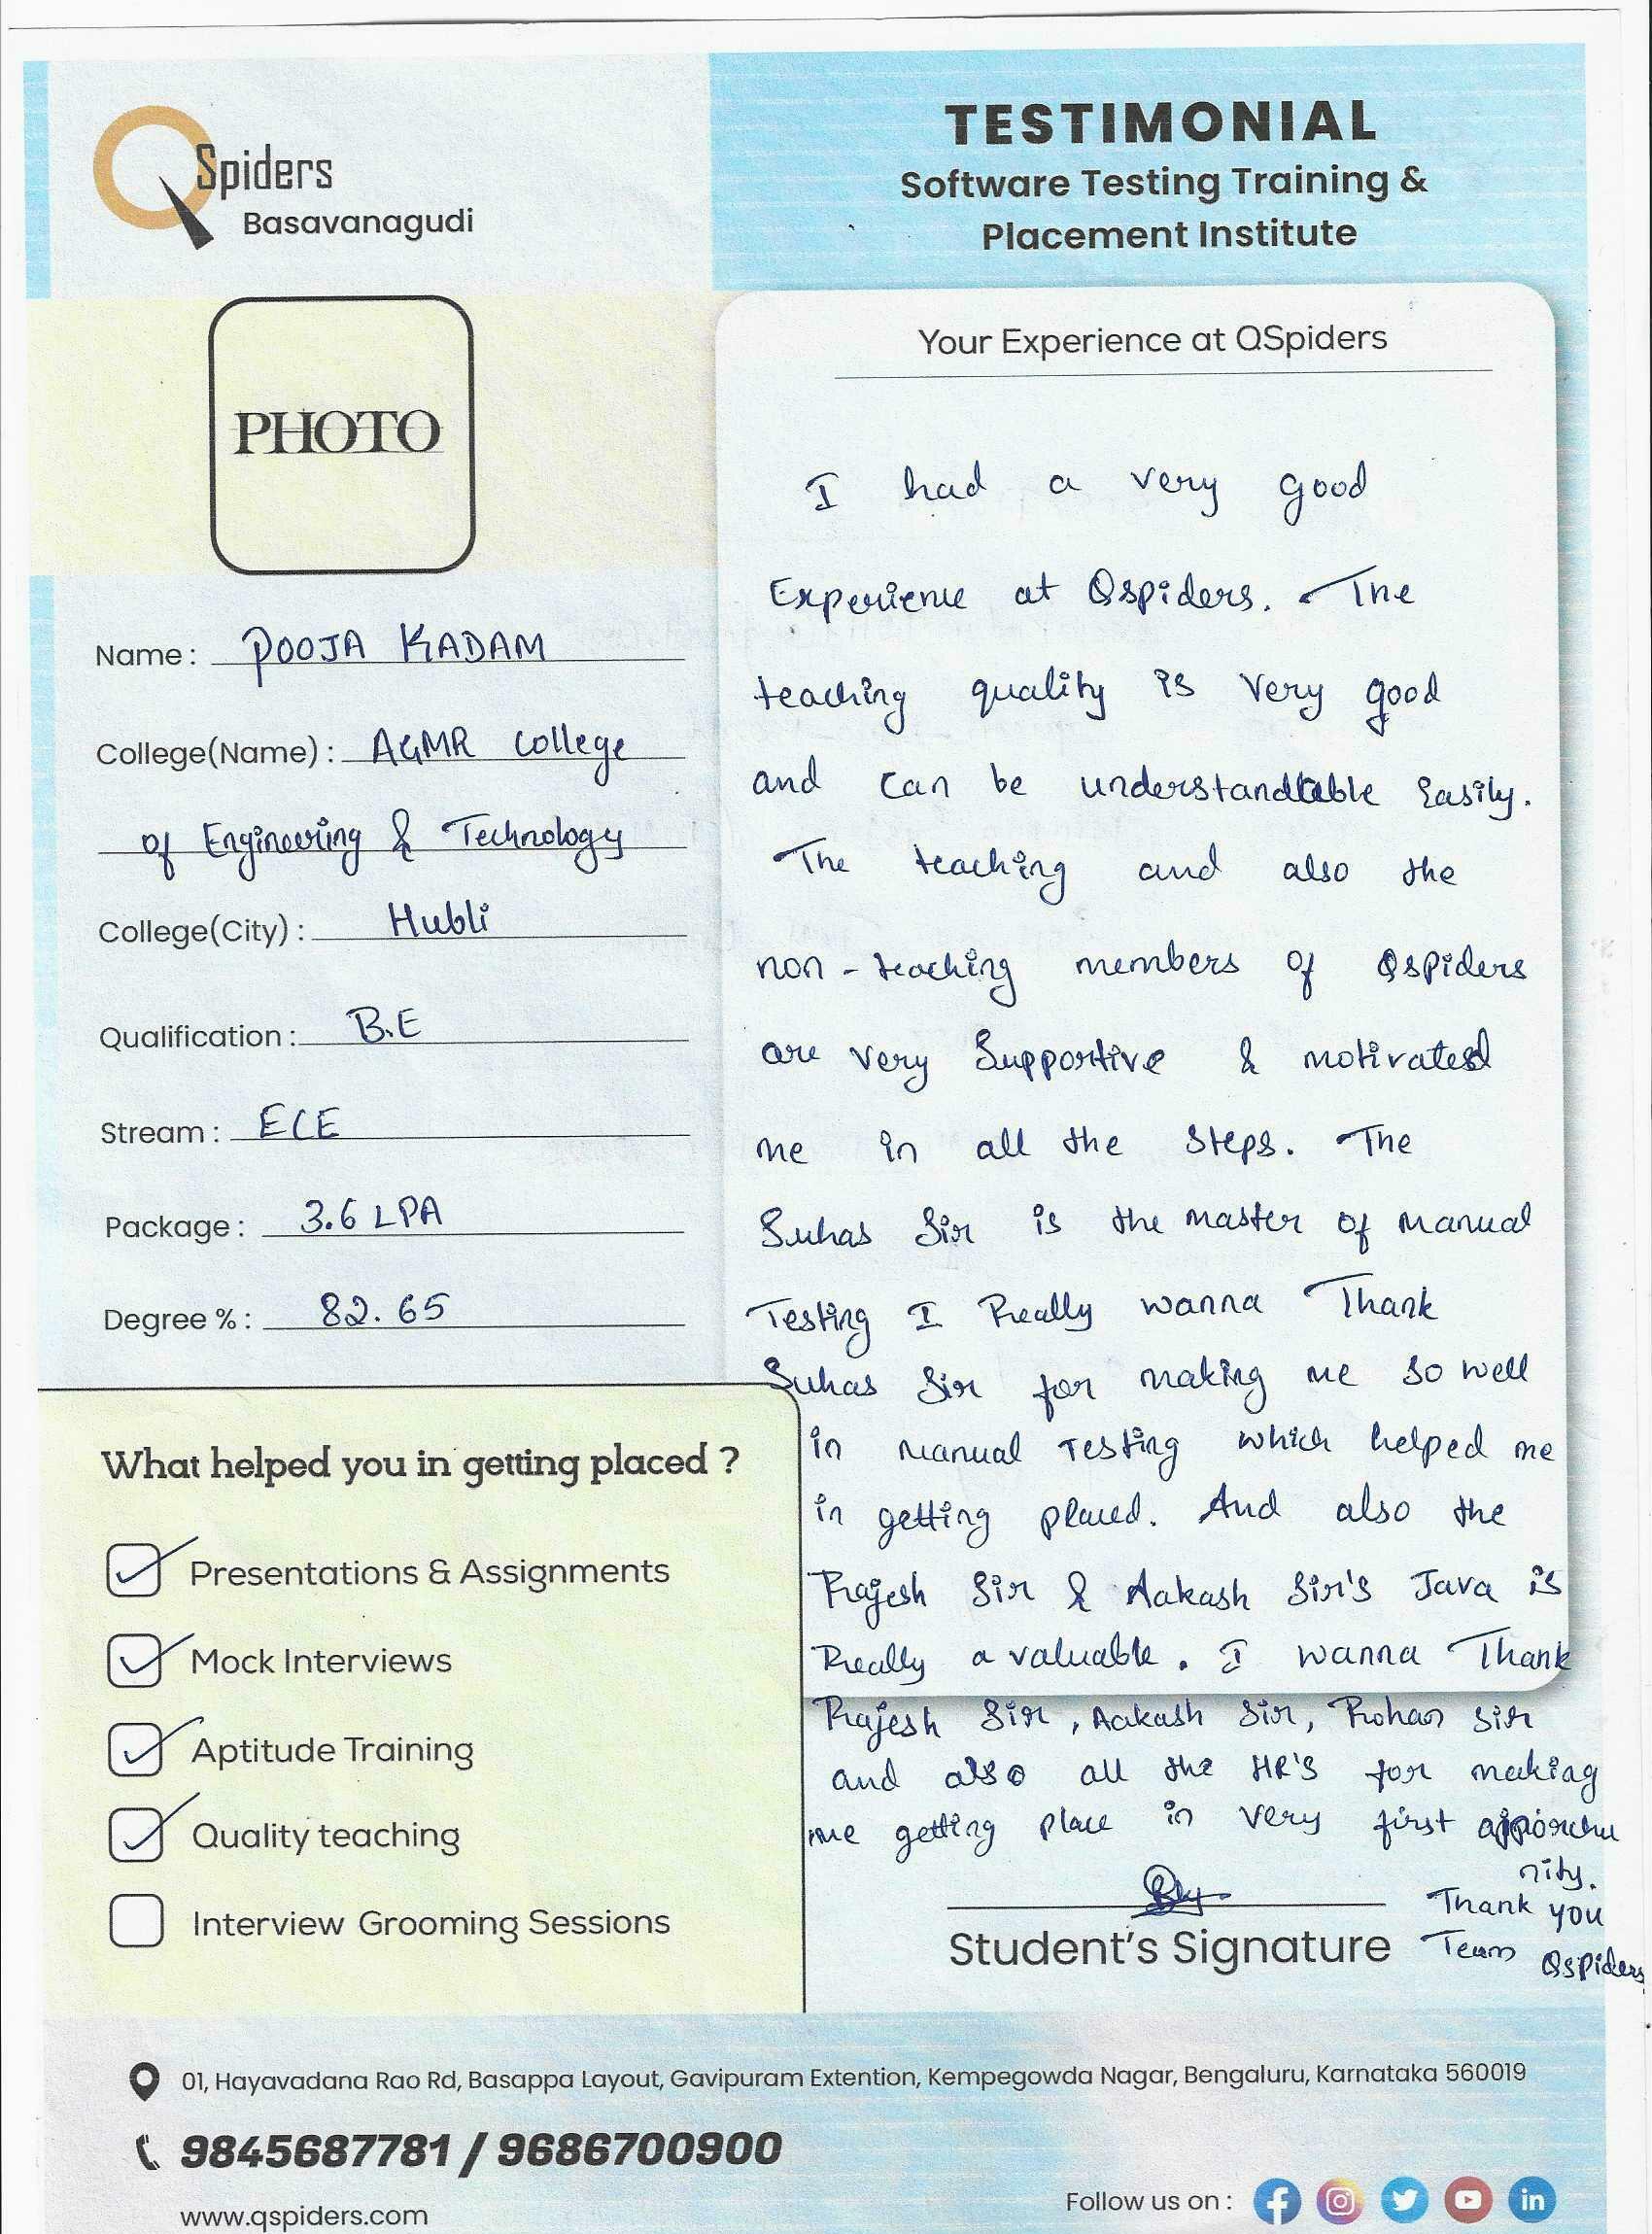 QSpiders
Basavanagudi
TESTIMONIAL
Software Testing Training &
Placement Institute
PHOTO
Name : POOJA KADAM
College(Name) : AGMR College
of Engineering & Technology
College(City) : Hubli
Qualification : B.E
Stream : ECE
Package : 3.6 LPA
Degree % : 82.65
What helped you in getting placed ?
Presentations & Assignments
Mock Interviews
Aptitude Training
Quality teaching
Interview Grooming Sessions
Your Experience at QSpiders
I had a very good
Experience at Qspiders. The
teaching quality is very good
and can be understandable Easily.
The teaching and also the
non-teaching members of Qspiders
are very Supportive & motivated
me in all the Steps. The
Suhas Sir is the Master of Manual
Testing I Really wanna Thank
Suhas Sir for making me so well
in Manual Testing which helped me
in getting placed. And also the
Rajesh Sir & Aakash Sir's Java is
Really a valuable. I wanna Thank
Rajesh Sir, Aakash Sir, Rohan Sir
and also all the HR'S for making
me getting place in very first
nity.
Thank you
Team Qspiders
Student's Signature
01, Hayavadana Rao Rd, Basappa Layout, Gavipuram Extention, Kempegowda Nagar, Bengaluru, Karnataka 560019
9845687781 / 9686700900
www.qspiders.com
Follow us on :